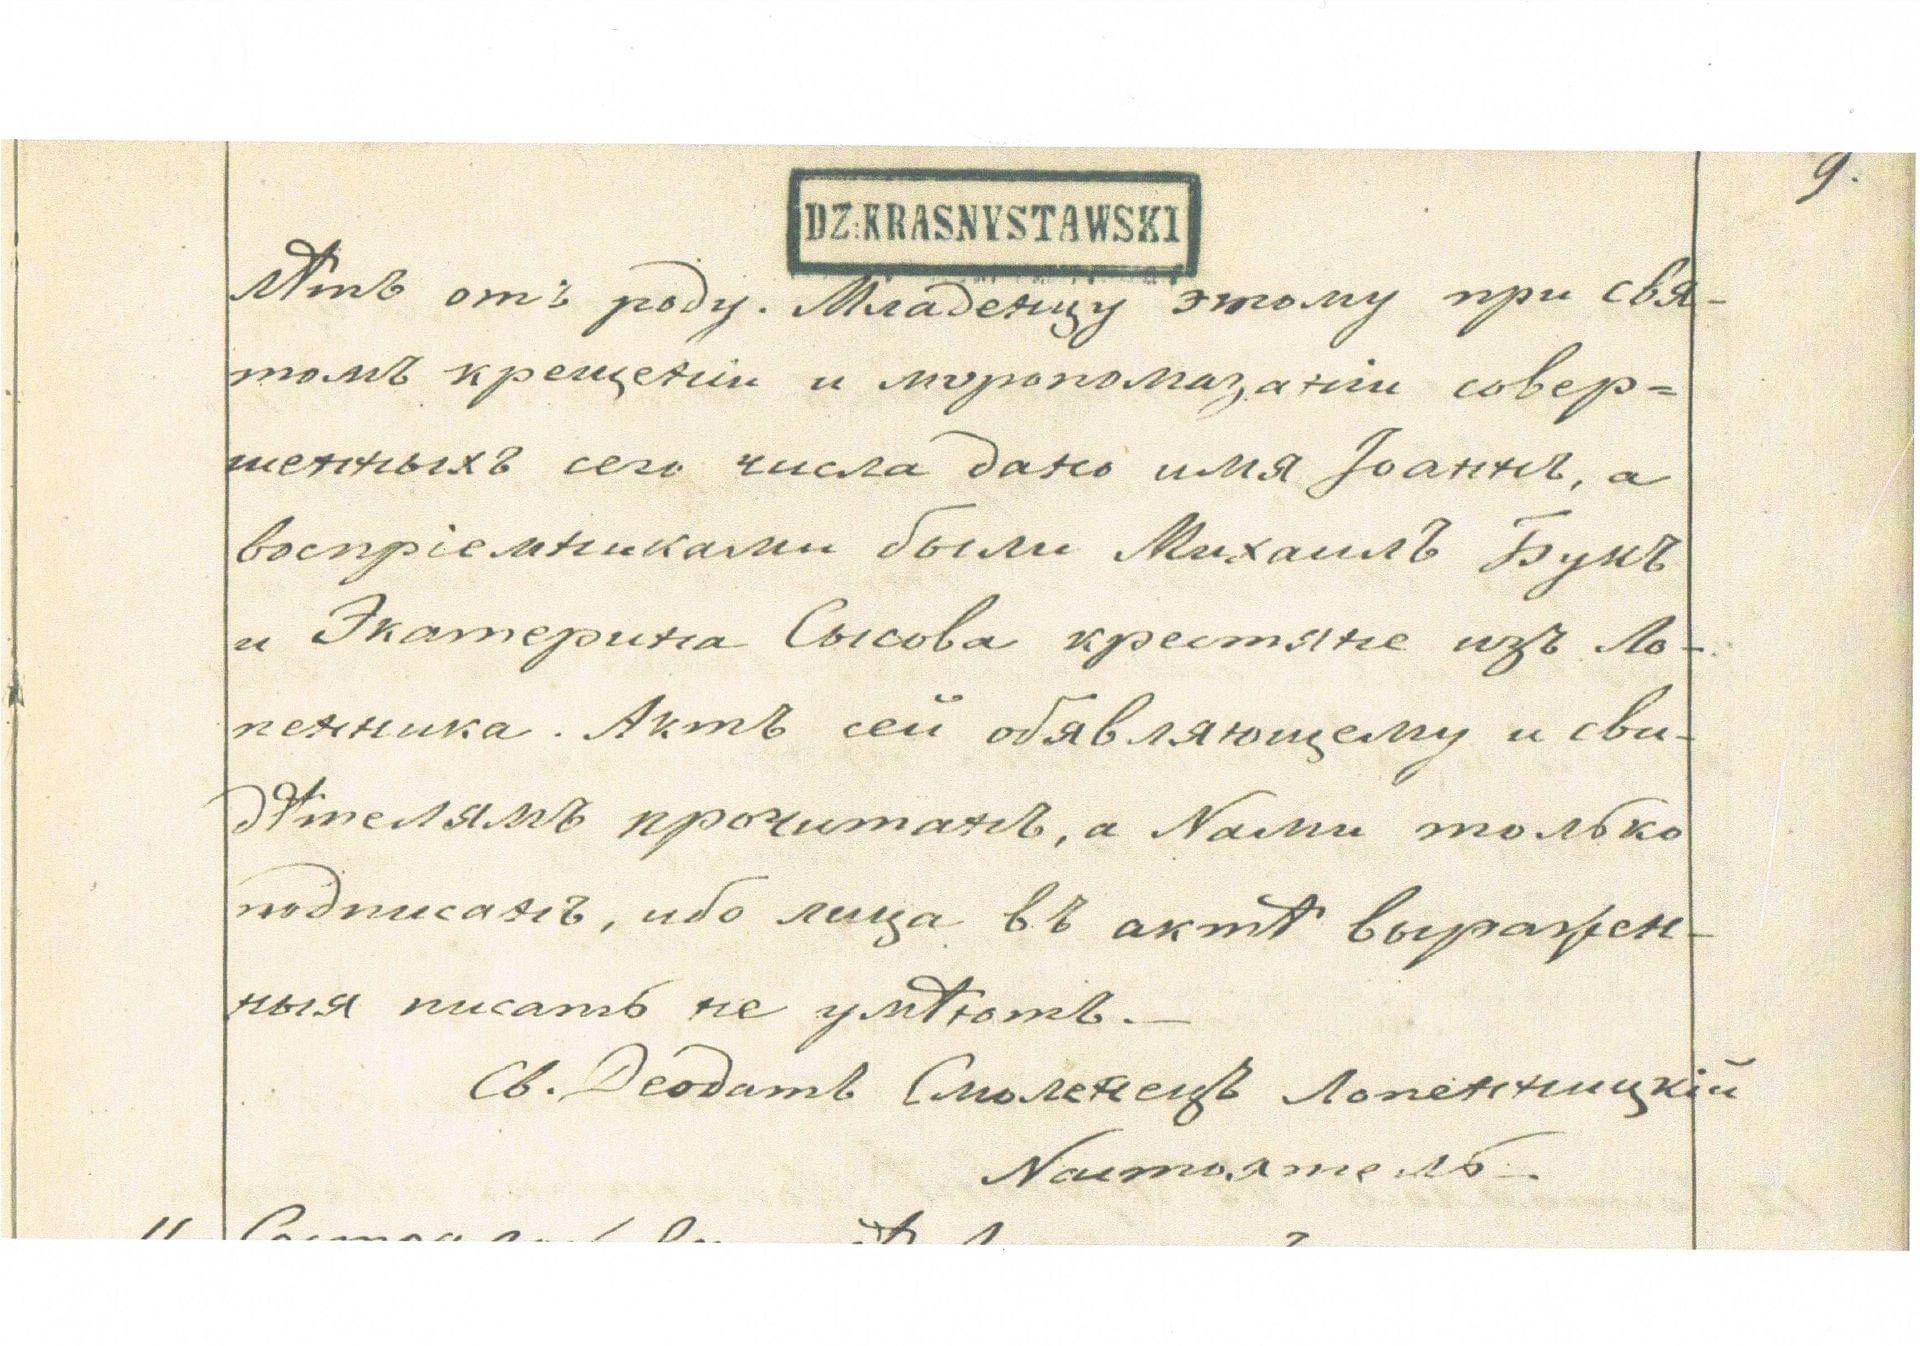 9.
DZ.KRASNYSTAWSKI
лѣтъ отъ роду. Младенцу этому при свя-
томъ крещенiи и мѵропомазанiи совер=
шенныхъ сего числа дано имя Iоаннъ, а
воспрiемниками были Михаилъ Букъ
и Экатерина Сысова крестяне изъ Ло-
пенника. Актъ сей обявляющему и сви-
дѣтелямъ прочитанъ, а Нами только
подписанъ, ибо лица въ актѣ выражен-
ныя писать не умѣютъ.—
Св. Деодатъ Смоленецъ Лопенницкiй
Настоятель.